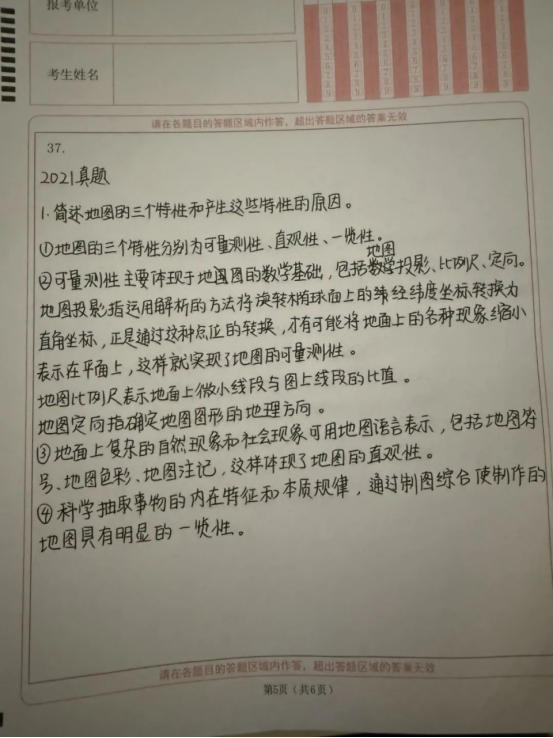 报考单位
考生姓名
请在各题目的答题区域内作答，超出答题区域的答案无效
37.
2021真题
1. 简述地图的三个特性和产生这些特性的原因。
①地图的三个特性分别为可量测性、直观性、一览性。
地图
②可量测性主要体现于地图的数学基础，包括数学投影、比例尺、定向。
地图投影指运用解析的方法将旋转椭球面上的经纬度坐标转换为
直角坐标，正是通过这种点位的转换，才有可能将地面上的各种现象缩小
表示在平面上，这样就实现了地图的可量测性。
地图比例尺表示地面上微小线段与图上线段的比值。
地图定向指确定地图图形的地理方向。
③地面上复杂的自然现象和社会现象可用地图语言表示，包括地图符
号、地图色彩、地图注记，这样体现了地图的直观性。
④科学抽取事物的内在特征和本质规律，通过制图综合使制作的
地图具有明显的一览性。
请在各题目的答题区域内作答，超出答题区域的答案无效
第5页（共6页）